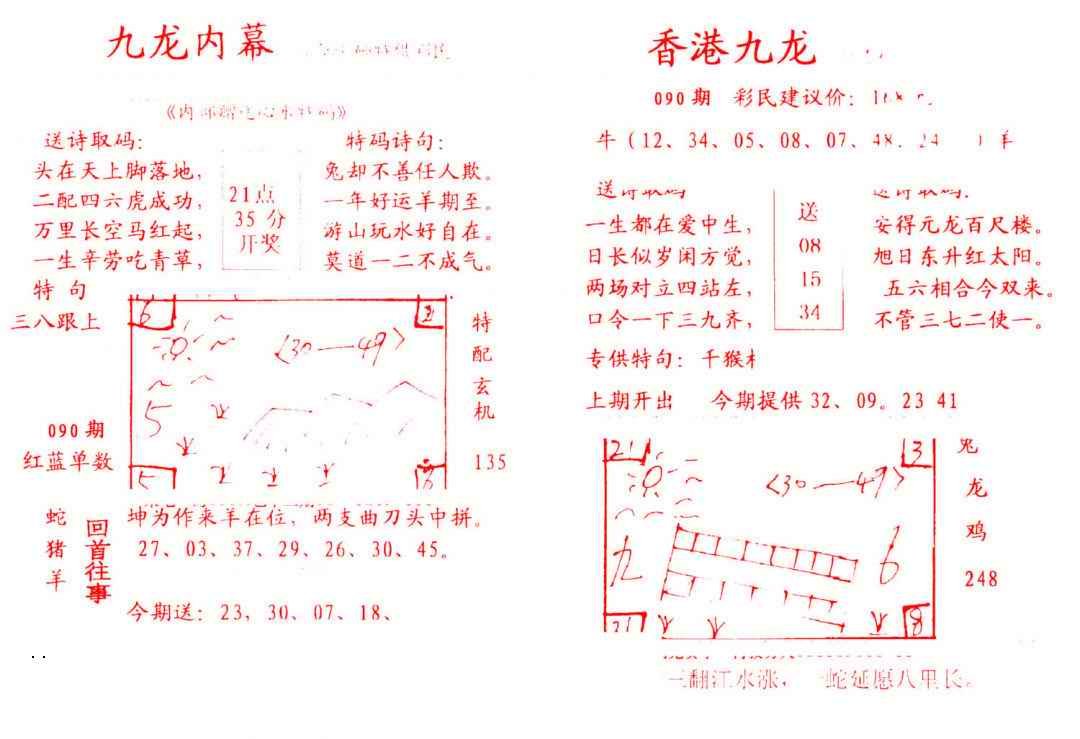 九龙内幕
送诗取码:
头在天上脚落地,
二配四六虎成功,
万里长空马红起,
一生辛劳吃青草,
特 句
三八跟上
21点
35 分
开奖
特码诗句:
兔却不善任人欺。
一年好运羊期至。
游山玩水好自在。
莫道一二不成气。
6
2
〈30—49〉
5
特
配
玄
机
135
090 期
红蓝单数
蛇
猪
羊
回首往事
坤为作来羊在位, 两支曲刀头中拼。
27、03、37、29、26、30、45。
今期送: 23, 30、07、18、
香港九龙
090 期 彩民建议价:
牛 ( 12、34、05、08、07、48、24 ) 羊
送诗取码
一生都在爱中生,
日长似岁闲方觉,
两场对立四站左,
口令一下三九齐,
送
08
15
34
送诗取码:
安得元龙百尺楼。
旭日东升红太阳。
五六相合今双来。
不管三七二使一。
专供特句: 千猴
上期开出 今期提供 32、09。23 41
21
3
〈30—49〉
九
6
21
8
兔
龙
鸡
248
三翻江水涨, 蛇延愿八里长。